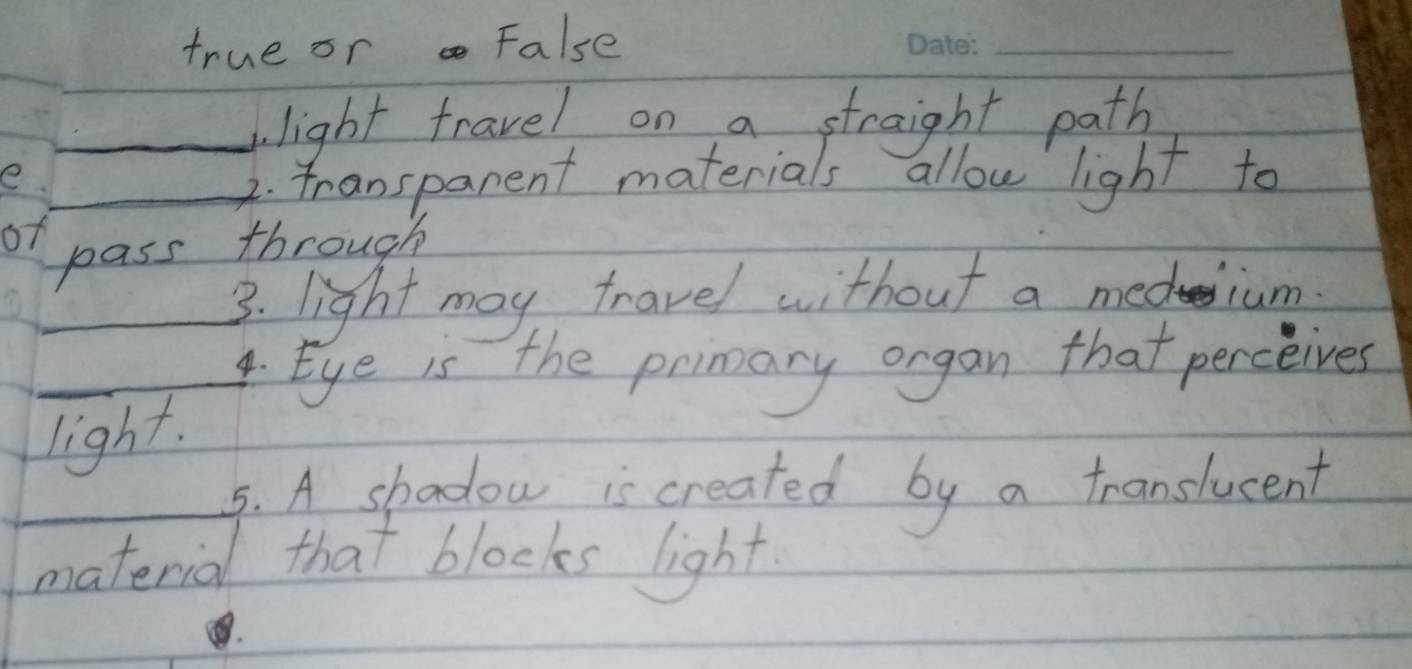 true or False
Date:
1. light travel on a straight path
e.
2. transparent materials allow light to
of
pass through
3. light may travel without a medium.
4. Eye is the primary organ that perceives
light.
5. A shadow is created by a translucent
material that blocks light.